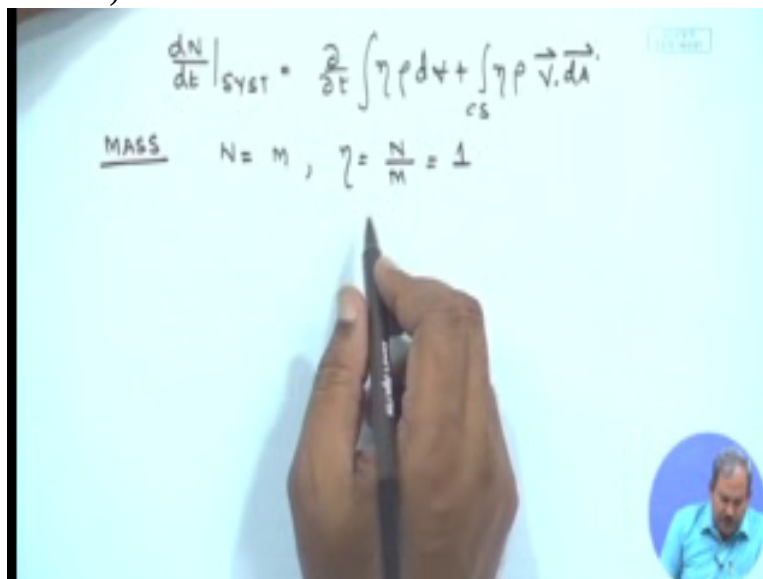 dN/dt|SYST = ∂/∂t ∫ηρdV + ∫CS ηρ V⃗.dA⃗
MASS N = M, η = N/M = 1